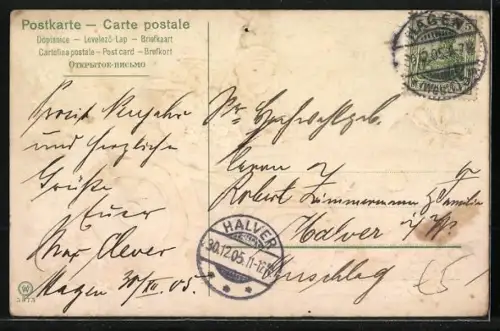 Postkarte — Carte postale
Dopisnice - Levelező-Lap - Briefkaart
Cartolina postale - Post card - Brefkort
Открытое письмо
Prosit Neujahr
und herzliche
Grüße
Euer
Max Clever
Hagen 30/XII. 05.
Sr. Hochwohlgeb.
Herrn
Robert Zimmermann & Familie
Halver i/W.
HAGEN
30.12.05
HALVER
30.12.05. 11-12